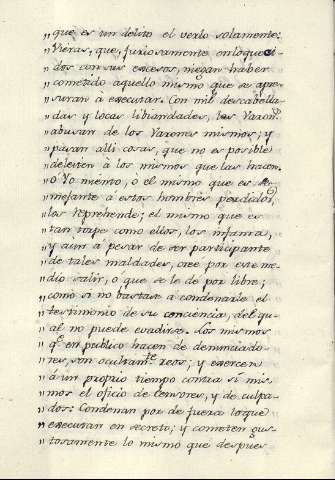 "que es un delito el verlo solamente:
"Vieras, que, furiosamente enloqueci-
"dos con sus excesos, niegan haber
"cometido aquello mismo que se apre-
"suran à executar. Con mil descabella-
"das y locas liviandades, los Varon.s
"abusan de los Varones mismos; y
"pasan alli cosas, que no es posible
"deleiten à los mismos que las hacen.
"ò Yo miento, ò el mismo que es se-
"mejante à estos hombres perdidos,
"los reprehende; el mismo que es
"tan torpe como ellos, los infama,
"y aun à pesar de ser participante
"de tales maldades, cree por este me-
"dio salir, o que se le dè por libre;
"como si no bastase à condenarle el
"testimonio de su conciencia, del qu-
"al no puede evadirse. Los mismos
"q.e en publico hacen de denunciado-
"res, son ocultam.te reos; y exercen
"à un proprio tiempo contra sì mis-
"mos el oficio de Censores, y de culpa-
"dos: Condenan por de fuera lo que
"executan en secreto; y cometen gus-
"tosamente lo mismo que despues